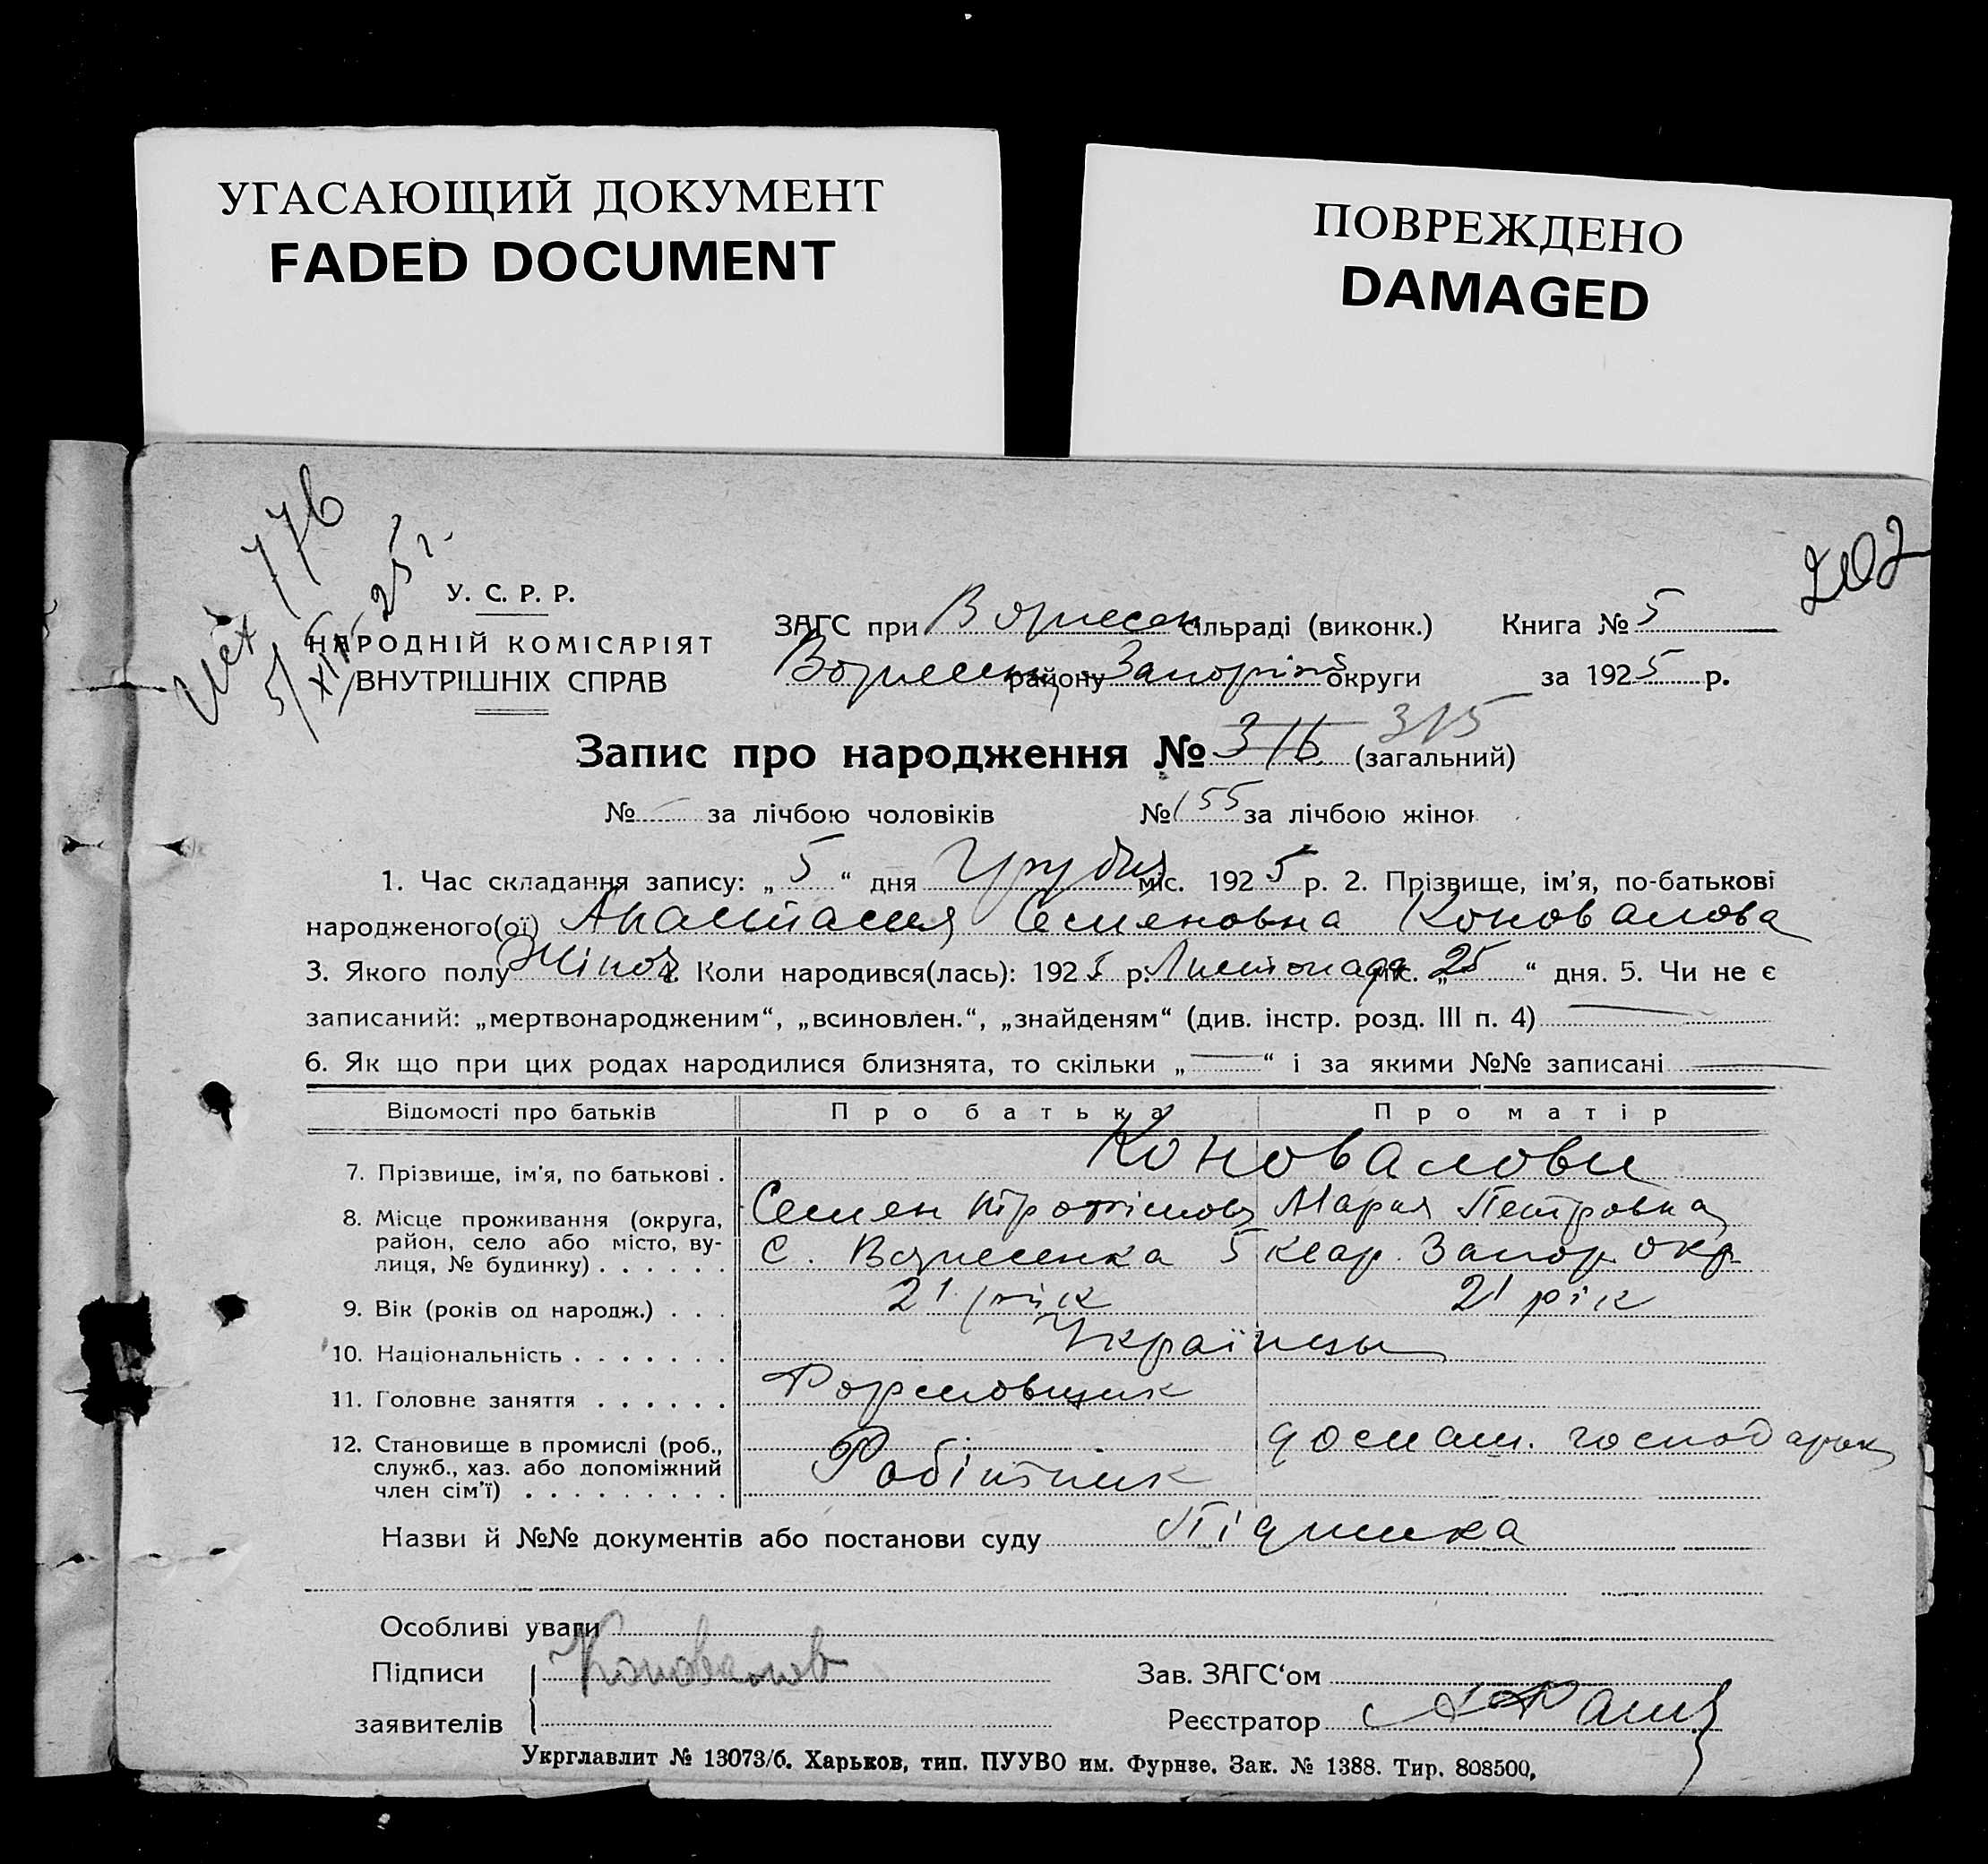 УГАСАЮЩИЙ ДОКУМЕНТ
FADED DOCUMENT
ПОВРЕЖДЕНО
DAMAGED
776
5/XII 25 г.
202
У. С. Р. Р.
НАРОДНІЙ КОМІСАРІЯТ
ВНУТРІШНІХ СПРАВ
ЗАГС при Вознесен сільраді (виконк.) Книга № 5
Вознесенц району Запоріж округи за 1925 р.
Запис про народження № 316 315 (загальний)
№ - за лічбою чоловіків № 155 за лічбою жінок
1. Час складання запису: „ 5 “ дня Грудня міс. 1925 р. 2. Прізвище, ім'я, по-батькові
народженого(ої) Анастасия Семеновна Коновалова
3. Якого полу Жіноч 4. Коли народився(лась): 1925 р. Листопада міс. „ 25 “ дня. 5. Чи не є
записаний: „мертвонародженим“, „всиновлен.“, „знайденям“ (див. інстр. розд. III п. 4) —
6. Як що при цих родах народилися близнята, то скільки „—“ і за якими №№ записані —
Відомості про батьків Про батька Про матір
7. Прізвище, ім'я, по батькові . Коновалови
Семен Трофімов Мария Петровна
8. Місце проживання (округа,
район, село або місто, ву-
лиця, № будинку) . . . . . . С. Вознесенка 5 квар. Запор. окр.
9. Вік (років од народж.) . . . 21 рік 21 рік
10. Національність . . . . . . . Українцы
11. Головне заняття . . . . . . Формовщик
12. Становище в промислі (роб.,
служб., хаз. або допоміжний
член сім'ї) . . . . . . . . . Робітник домаш. господарк
Назви й №№ документів або постанови суду
Особливі уваги
Підписи Коновалов Зав. ЗАГС‘ом
заявителів Реєстратор
Укрглавлит № 13073/б. Харьков, тип. ПУУВО им. Фурнзе. Зак. № 1388. Тир. 808500.